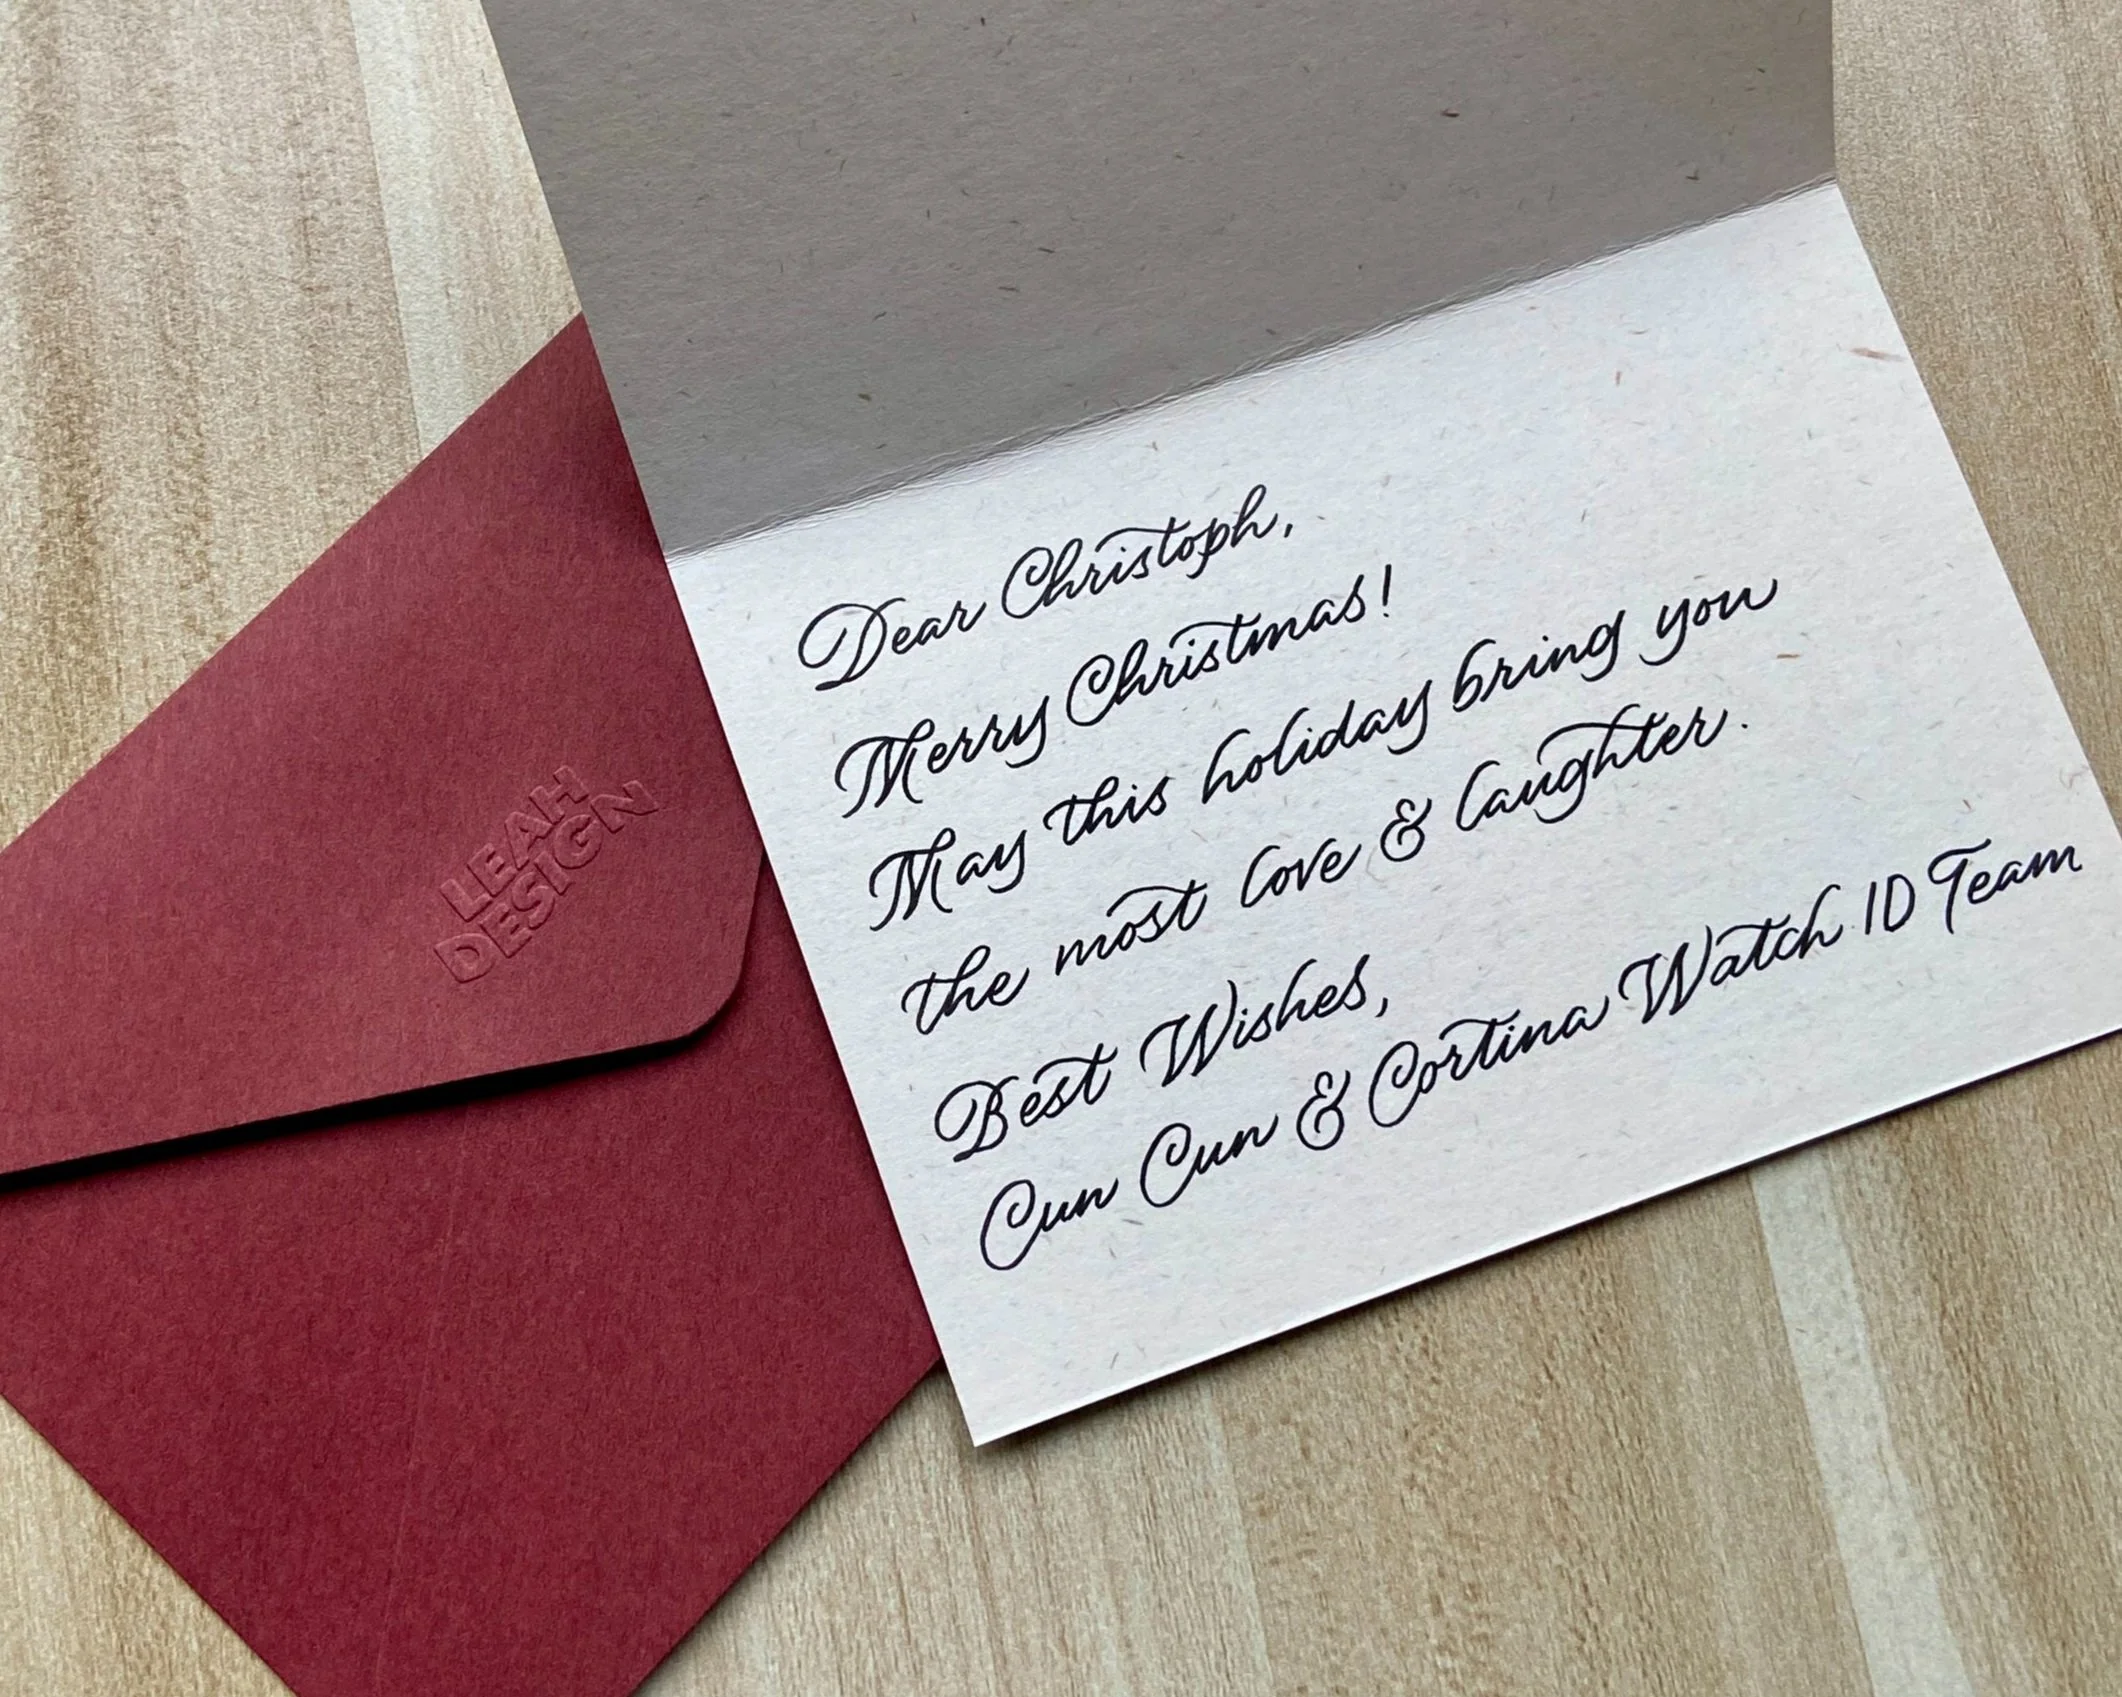 LEAH
DESIGN
Dear Christoph,
Merry Christmas!
May this holiday bring you
the most love & laughter.
Best Wishes,
Cun Cun & Cortina Watch ID Team